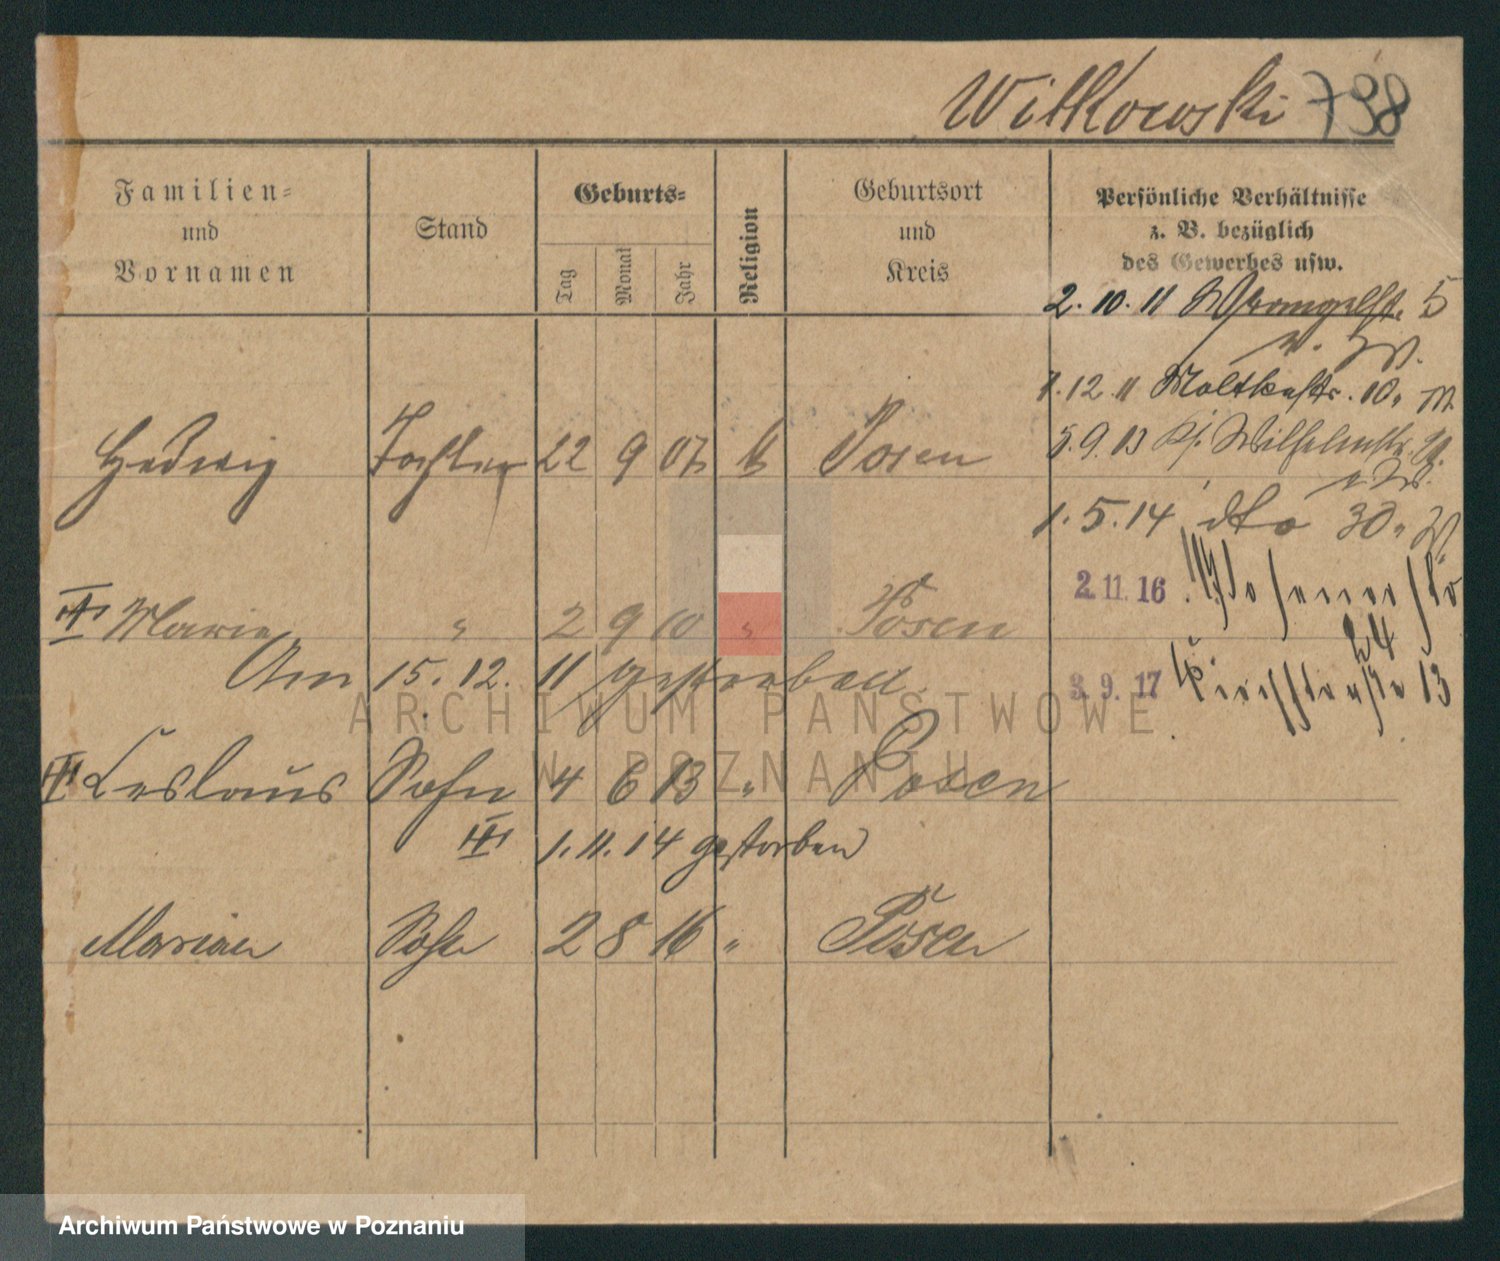 Witkowski 738
Familien-
und
Vornamen
Stand
Geburts-
Tag
Monat
Jahr
Religion
Geburtsort
und
Kreis
Persönliche Verhältnisse
z. B. bezüglich
des Gewerbes usw.
2. 10. 11 Wrangelstr. 5
v. W.
1. 12. 11 Moltkestr. 10,
5. 9. 13 Wilhelmstr.
Hedwig Tochter 22 9 07 k Posen
1. 5. 14 dto 30,
2. 11. 16 24
Marie " 2 9 10 " Posen
Am 15. 12. 11 gestorben
3. 9. 17 Kirchstraße 13
Leslaus Sohn 4 6 13 " Posen
1. 11. 14 gestorben
Marian Sohn 2 8 16 " Posen
ARCHIWUM PAŃSTWOWE
W POZNANIU
Archiwum Państwowe w Poznaniu